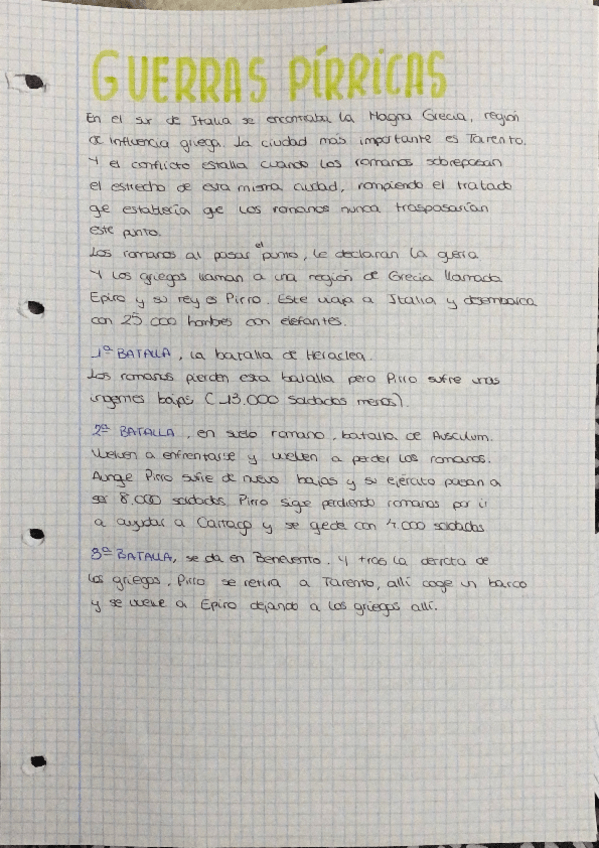 GUERRAS PÍRRICAS
En el sur de Italia se encontraba la Magna Grecia, región
de influencia griega. La ciudad más importante es Tarento.
Y el conflicto estalla cuando los romanos sobrepasan
el estrecho de esta misma ciudad, rompiendo el tratado
qe establecía qe los romanos nunca traspasarían
este punto.
Los romanos al pasar el punto, le declaran la guerra
Y los griegos llaman a una región de Grecia llamada
Epiro y su rey es Pirro. Este viaja a Italia y desembarca
con 25 000 hombres con elefantes.
1ª BATALLA, la batalla de Heraclea.
Los romanos pierden esta batalla pero Pirro sufre unas
ingentes bajas (-13.000 soldados menos).
2ª BATALLA, en suelo romano, batalla de Ausculum.
Vuelven a enfrentarse y vuelven a perder los romanos.
Aunqe Pirro sufre de nuevo bajas y su ejército pasan a
ser 8.000 soldados. Pirro sige perdiendo romanos por ir
a ayudar a Cartago y se qeda con 4 000 soldados
3ª BATALLA, se da en Benevento. Y tras la derrota de
los griegos, Pirro se retira a Tarento, allí coge un barco
y se vuelve a Epiro dejando a los griegos allí.